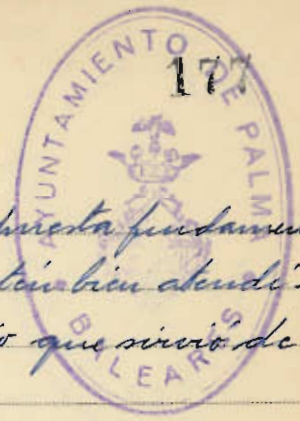 177
AYUNTAMIENTO DE PALMA
BALEARES
puesta fundamen
tén bien atendi
o que sirvió de